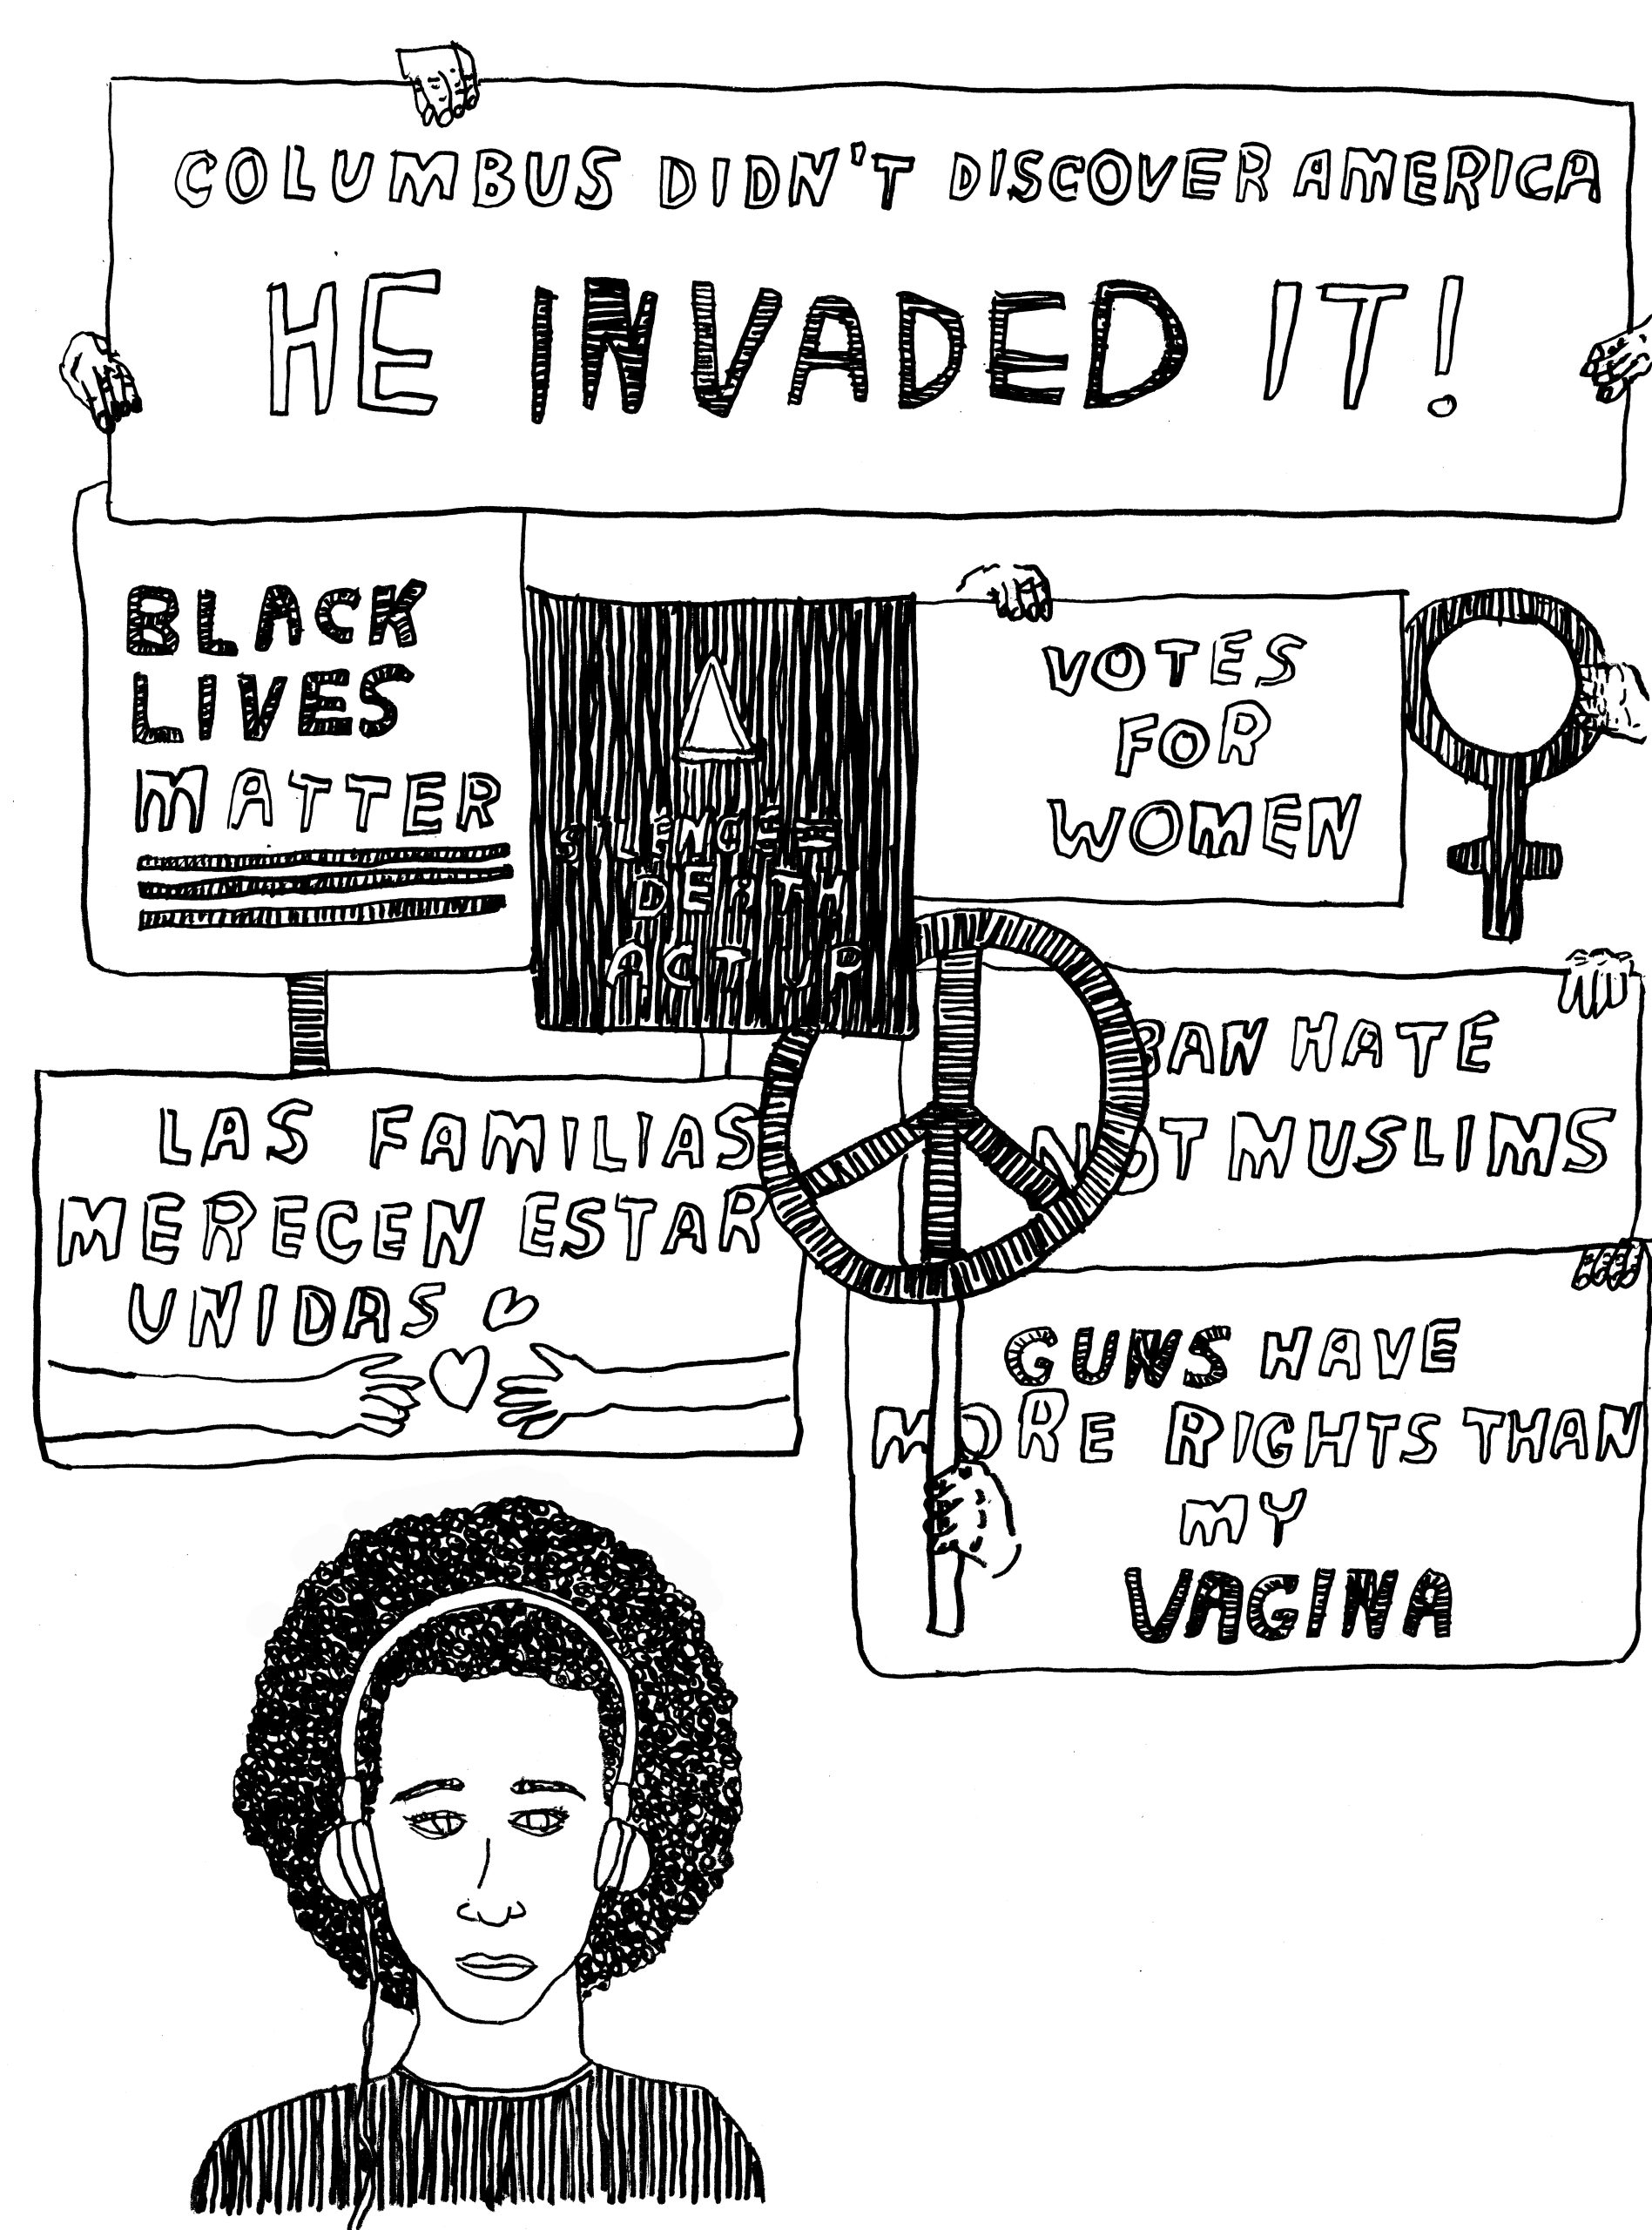 COLUMBUS DIDN'T DISCOVER AMERICA
HE INVADED IT!
BLACK
LIVES
MATTER
SILENCE =
DEATH
ACT UP
VOTES
FOR
WOMEN
BAN HATE
NOT MUSLIMS
LAS FAMILIAS
MERECEN ESTAR
UNIDAS
GUNS HAVE
MORE RIGHTS THAN
MY
VAGINA